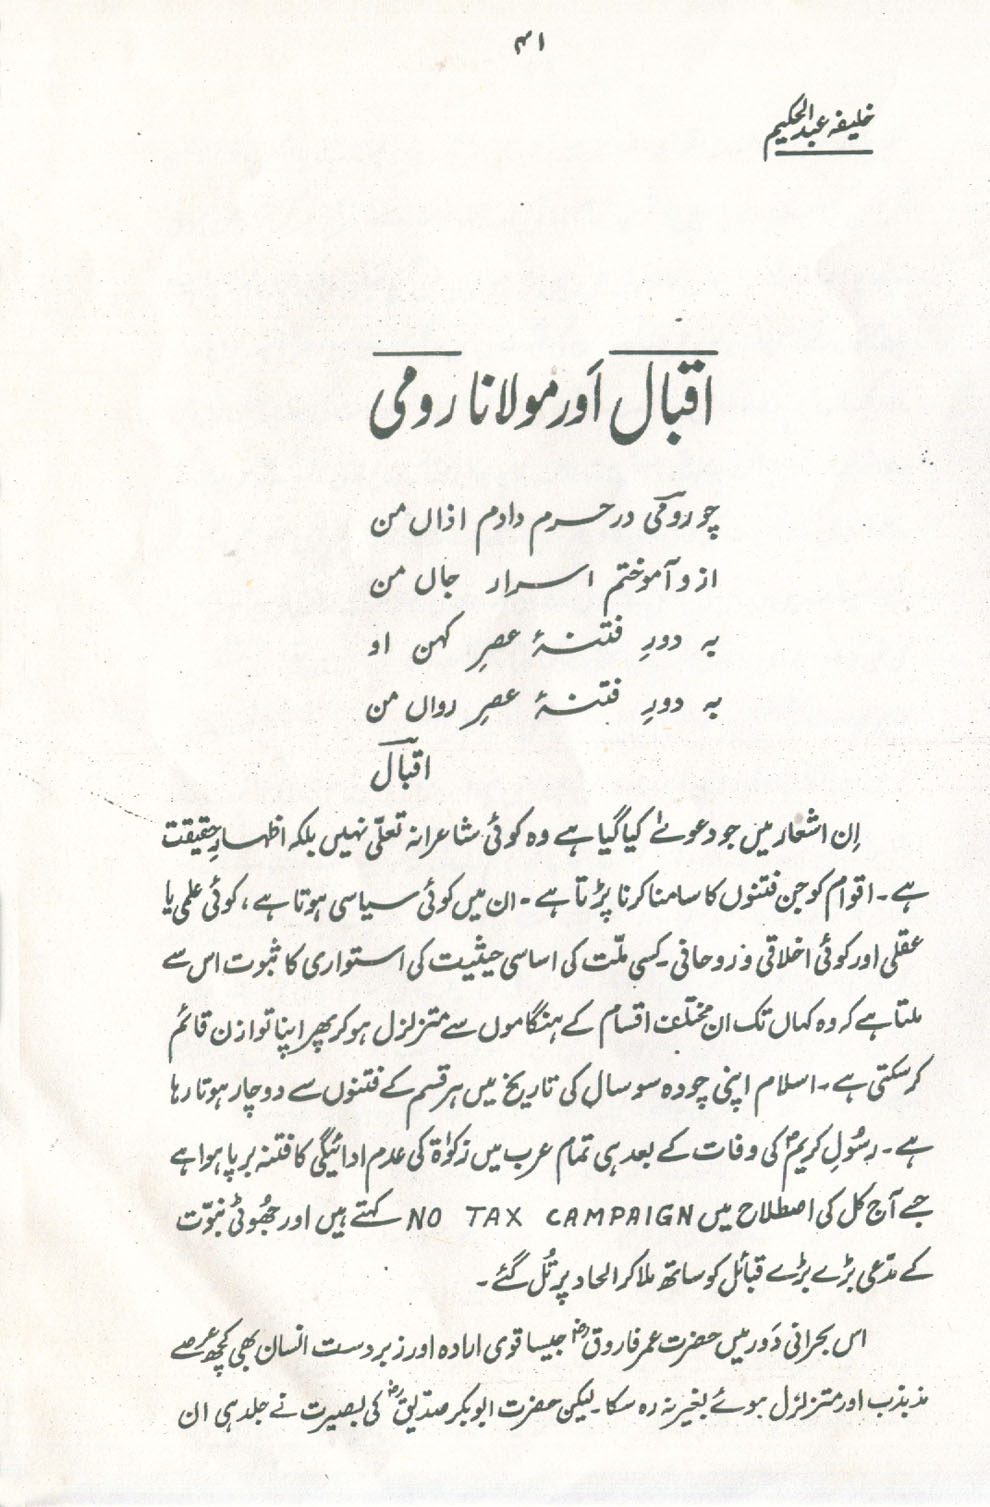 ۴۱
خلیفہ عبدالحکیم
اقبال اَور مولانا رومی
چو رومی در حرم دادم اذاں من
ازو آموختم اسرار جاں من
بہ دورِ فتنۂ عصرِ کہن او
بہ دورِ فتنۂ عصرِ رواں من
اقبال
اِن اشعار میں جو دعوےٰ کیا گیا ہے وہ کوئی شاعرانہ تعلّی نہیں بلکہ اظہارِ حقیقت
ہے۔ اقوام کو جن فتنوں کا سامنا کرنا پڑتا ہے۔ ان میں کوئی سیاسی ہوتا ہے، کوئی علمی یا
عقلی اور کوئی اخلاقی و روحانی۔ کسی ملّت کی اساسی حیثیت کی استواری کا ثبوت اس سے
ملتا ہے کہ وہ کہاں تک ان مختلف اقسام کے ہنگاموں سے متزلزل ہو کر پھر اپنا توازن قائم
کر سکتی ہے۔ اسلام اپنی چودہ سو سال کی تاریخ میں ہر قسم کے فتنوں سے دوچار ہوتا رہا
ہے۔ رسُولِ کریمؐ کی وفات کے بعد ہی تمام عرب میں زکوٰۃ کی عدم ادائیگی کا فتنہ برپا ہوا ہے
جسے آج کل کی اصطلاح میں NO TAX CAMPAIGN کہتے ہیں اور جھُوٹی نبوّت
کے مدّعی بڑے بڑے قبائل کو ساتھ ملا کر الحاد پر تُل گئے۔
اس بحرانی دَور میں حضرت عمر فاروقؓ جیسا قوی ارادہ اور زبردست انسان بھی کچھ عرصے
مذبذب اور متزلزل ہوئے بغیر نہ رہ سکا۔ لیکن حضرت ابوبکر صدیقؓ کی بصیرت نے جلد ہی ان